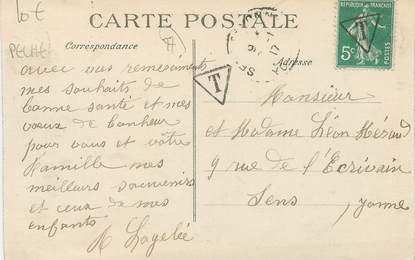 lot
PECHE
CARTE POSTALE
Correspondance
Adresse
RÉPUBLIQUE FRANÇAISE
5c
POSTES
T
T
17
avec nos remerciements
mes souhaits de
bonne santé et mes
vœux de bonheur
pour vous et vôtre
Famille mes
meilleurs souvenirs
et ceux de mes
enfants
Monsieur
et Madame Léon Héraud
9 rue de l'Ecrivain
Sens Yonne